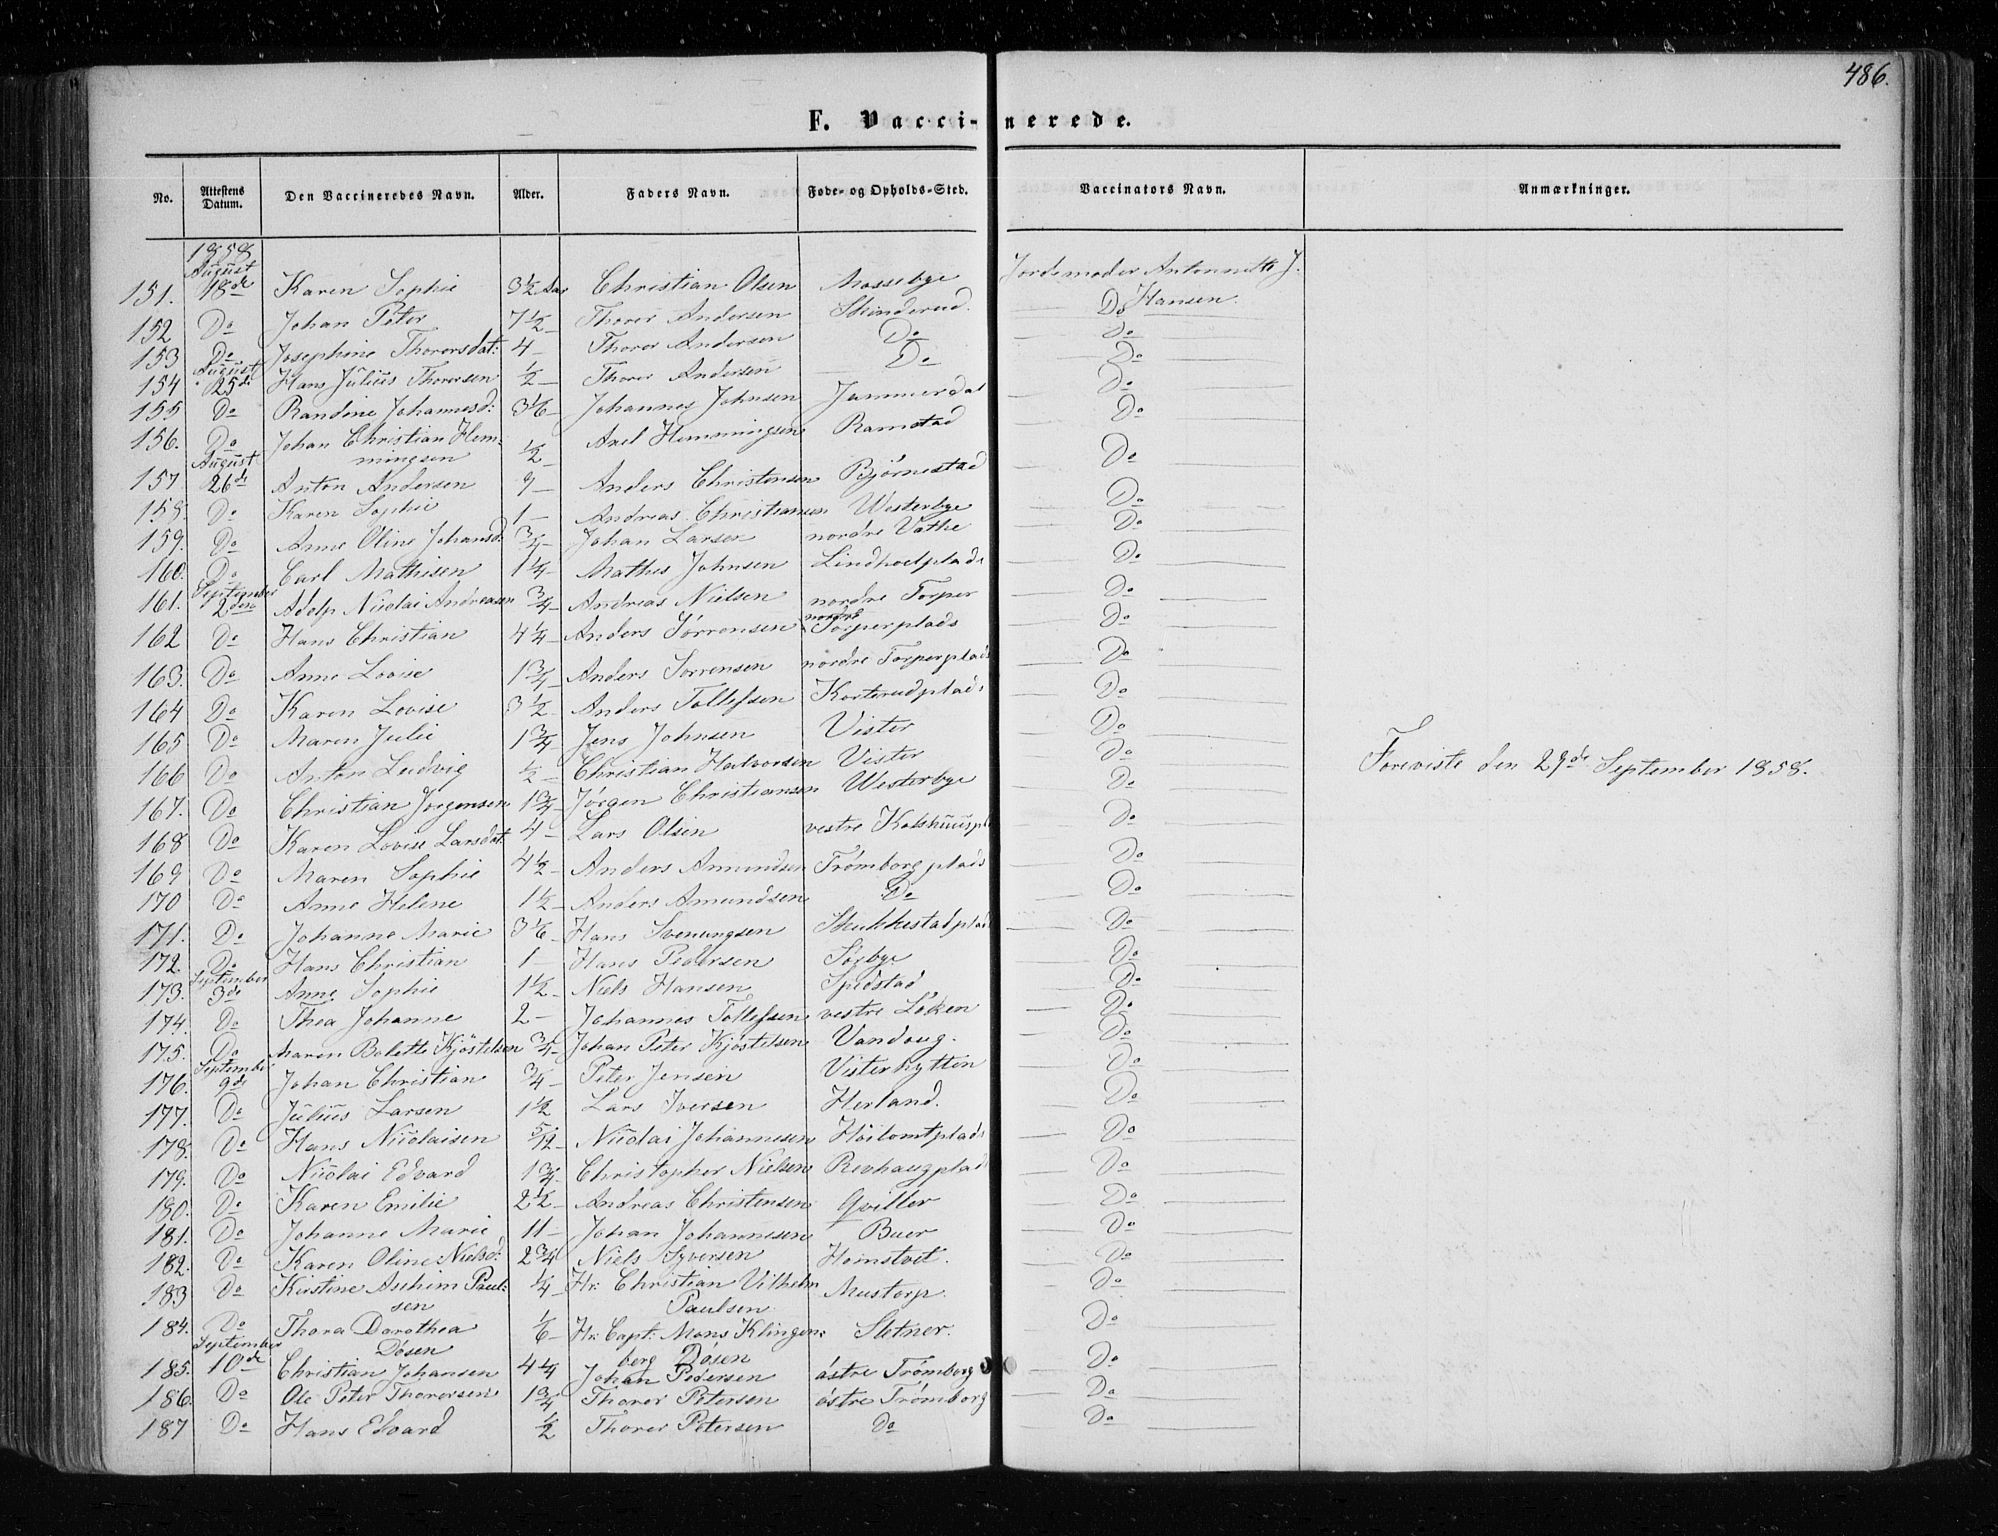 486.
F. Vaccinerede.
No. Attestens Datum. Den Vaccineredes Navn. Alder. Faders Navn. Føde- og Opholds-Sted. Vaccinators Navn. Anmærkninger.
1858
August
151. 18de Karen Sophie 3½ Aar Christian Olsen Mossebye Jordemoder Antonnette J. Hansen.
152 Do Johan Peter 7½ — Thorer Andersen Skinderud. Do
153 Do Josephine Thorersdat: 4 — Thorer Andersen Do Do
August
154 25de Hans Julius Thorersen ½ — Thorer Andersen Do Do
155 Do Randine Johannesd: 3⅙ — Johannes Johnsen Jammerdal Do
156. Do Johan Christian Hemmingsen ½ Axel Hemmingsen Ramstad Do
August
157 26de Anton Andersen 9 — Anders Christensen Bjørnestad Do
158. Do Karen Sophie 1 — Andreas Christiansen Westerbye Do
159. Do Anne Oline Johansd: ¾ — Johan Larsen nordre Vathe Do
160. Do Carl Mathisen 1¼ — Mathes Johnsen Lindhoelplads Do
September
161. 2den Adolp Nicolai Andreasen ¾ — Andreas Nielsen nordre Torper Do
162 Do Hans Christian 4¼ — Anders Sørrensen nordre Torperplads Do
163. Do Anne Lovise 1¾ — Anders Sørrensen nordre Torperplads Do
164 Do Karen Lovise 3½ — Anders Tollefsen Korterudplads Do
165 Do Maren Julie 1¾ — Jens Johnsen Vister Do
166 Do Anton Ludvig ½ — Christian Halvorsen Vister Do
Foreviste den 29de September 1858.
167. Do Christian Jørgensen 1¾ — Jørgen Christiansen Westerbye Do
168 Do Karen Lovise Larsdat: 4 — Lars Olsen vestre Kolshuuspl Do
169 Do Maren Sophie 4½ — Anders Amundsen Trømborgplads Do
170 Do Anne Helene 1½ — Anders Amundsen Do Do
171. Do Johanne Marie 3⅙ — Hans Svenungsen Skukkestadplads Do
172. Do Hans Christian 1 — Hans Pedersen Søxbye Do
September
173. 3de Anne Sophie 1½ — Niels Hansen Spidstad Do
174. Do Thea Johanne 2 — Johannes Tollefsen vestre Løken Do
175. Do Maren Bolette Kjøstelsen ¾ — Johan Peter Kjøstelsen Vandoug. Do
September
176. 9de Johan Christian ¾ — Peter Jensen Visterhytten Do
177. Do Julius Larsen 1½ Lars Iversen Herland. Do
178. Do Hans Nicolaisen 5/12 — Nicolai Johannesen Høilomtplads Do
179. Do Nicolai Edvard 1¾ — Christopher Nielsen Revhaugplads Do
180. Do Karen Emilie 2½ — Andreas Christensen Qviller Do
181. Do Johanne Marie 11 — Johan Johannesen Buer Do
182. Do Karen Oline Nielsd: 2¾ Niels Syversen Homstvet. Do
183 Do Kirstine Aschim Paulsen ¼ — Hr: Christian Vilhelm Paulsen Mustorp. Do
184. Do Thora Dorothea Døsen ⅙ — Hr: Capt: Mons Klingenberg Døsen Sletner. Do
September
185. 10de Christian Johansen 4¼ Johan Pedersen østre Trømborg Do
186. Do Ole Peter Thorersen 1¾ Thorer Petersen østre Trømborg Do
187 Do Hans Edvard ½ Thorer Petersen Do Do